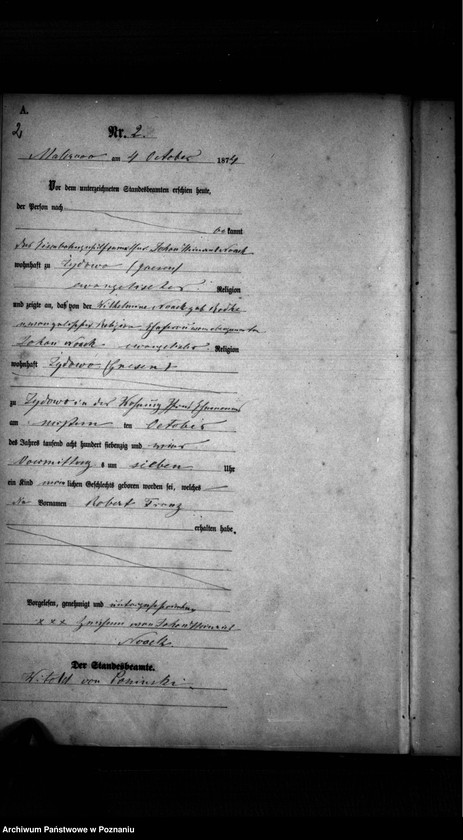 A.
2,
Nr. 2.
am 4 October 1874
Vor dem unterzeichneten Standesbeamten erschien heute,
der Person nach
be kannt
der
wohnhaft zu Zydowo (Gnesen)
evangelischer Religion
und zeigte an, daß von der Wilhelmine Noack geb
evangelischer Religion
Noack evangelischer Religion
wohnhaft Zydowo (Gnesen)
zu Zydowo in der Wohnung
am ersten ten October
des Jahres tausend acht hundert siebenzig und vier
Vormittag s um sieben Uhr
ein Kind männlichen Geschlechts geboren worden sei, welches
die Vornamen Robert Franz
erhalten habe.
Vorgelesen, genehmigt und unterschrieben
x x x Zeichen von
Noack
Der Standesbeamte.
Witold von Poninski
Archiwum Państwowe w Poznaniu